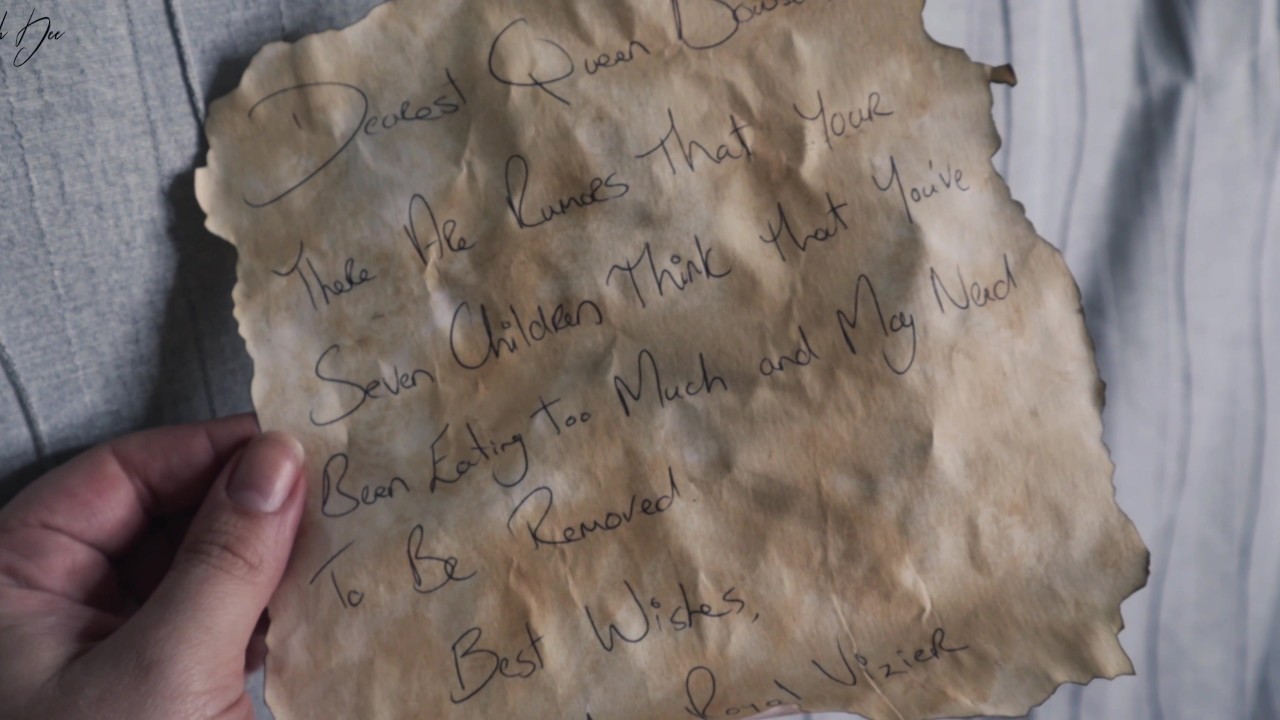 Dee
Dearest Queen
There Are Rumors That Your
Seven Children Think that You've
Been Eating Too Much and May Need
To Be Removed.
Best Wishes,
Royal Vizier